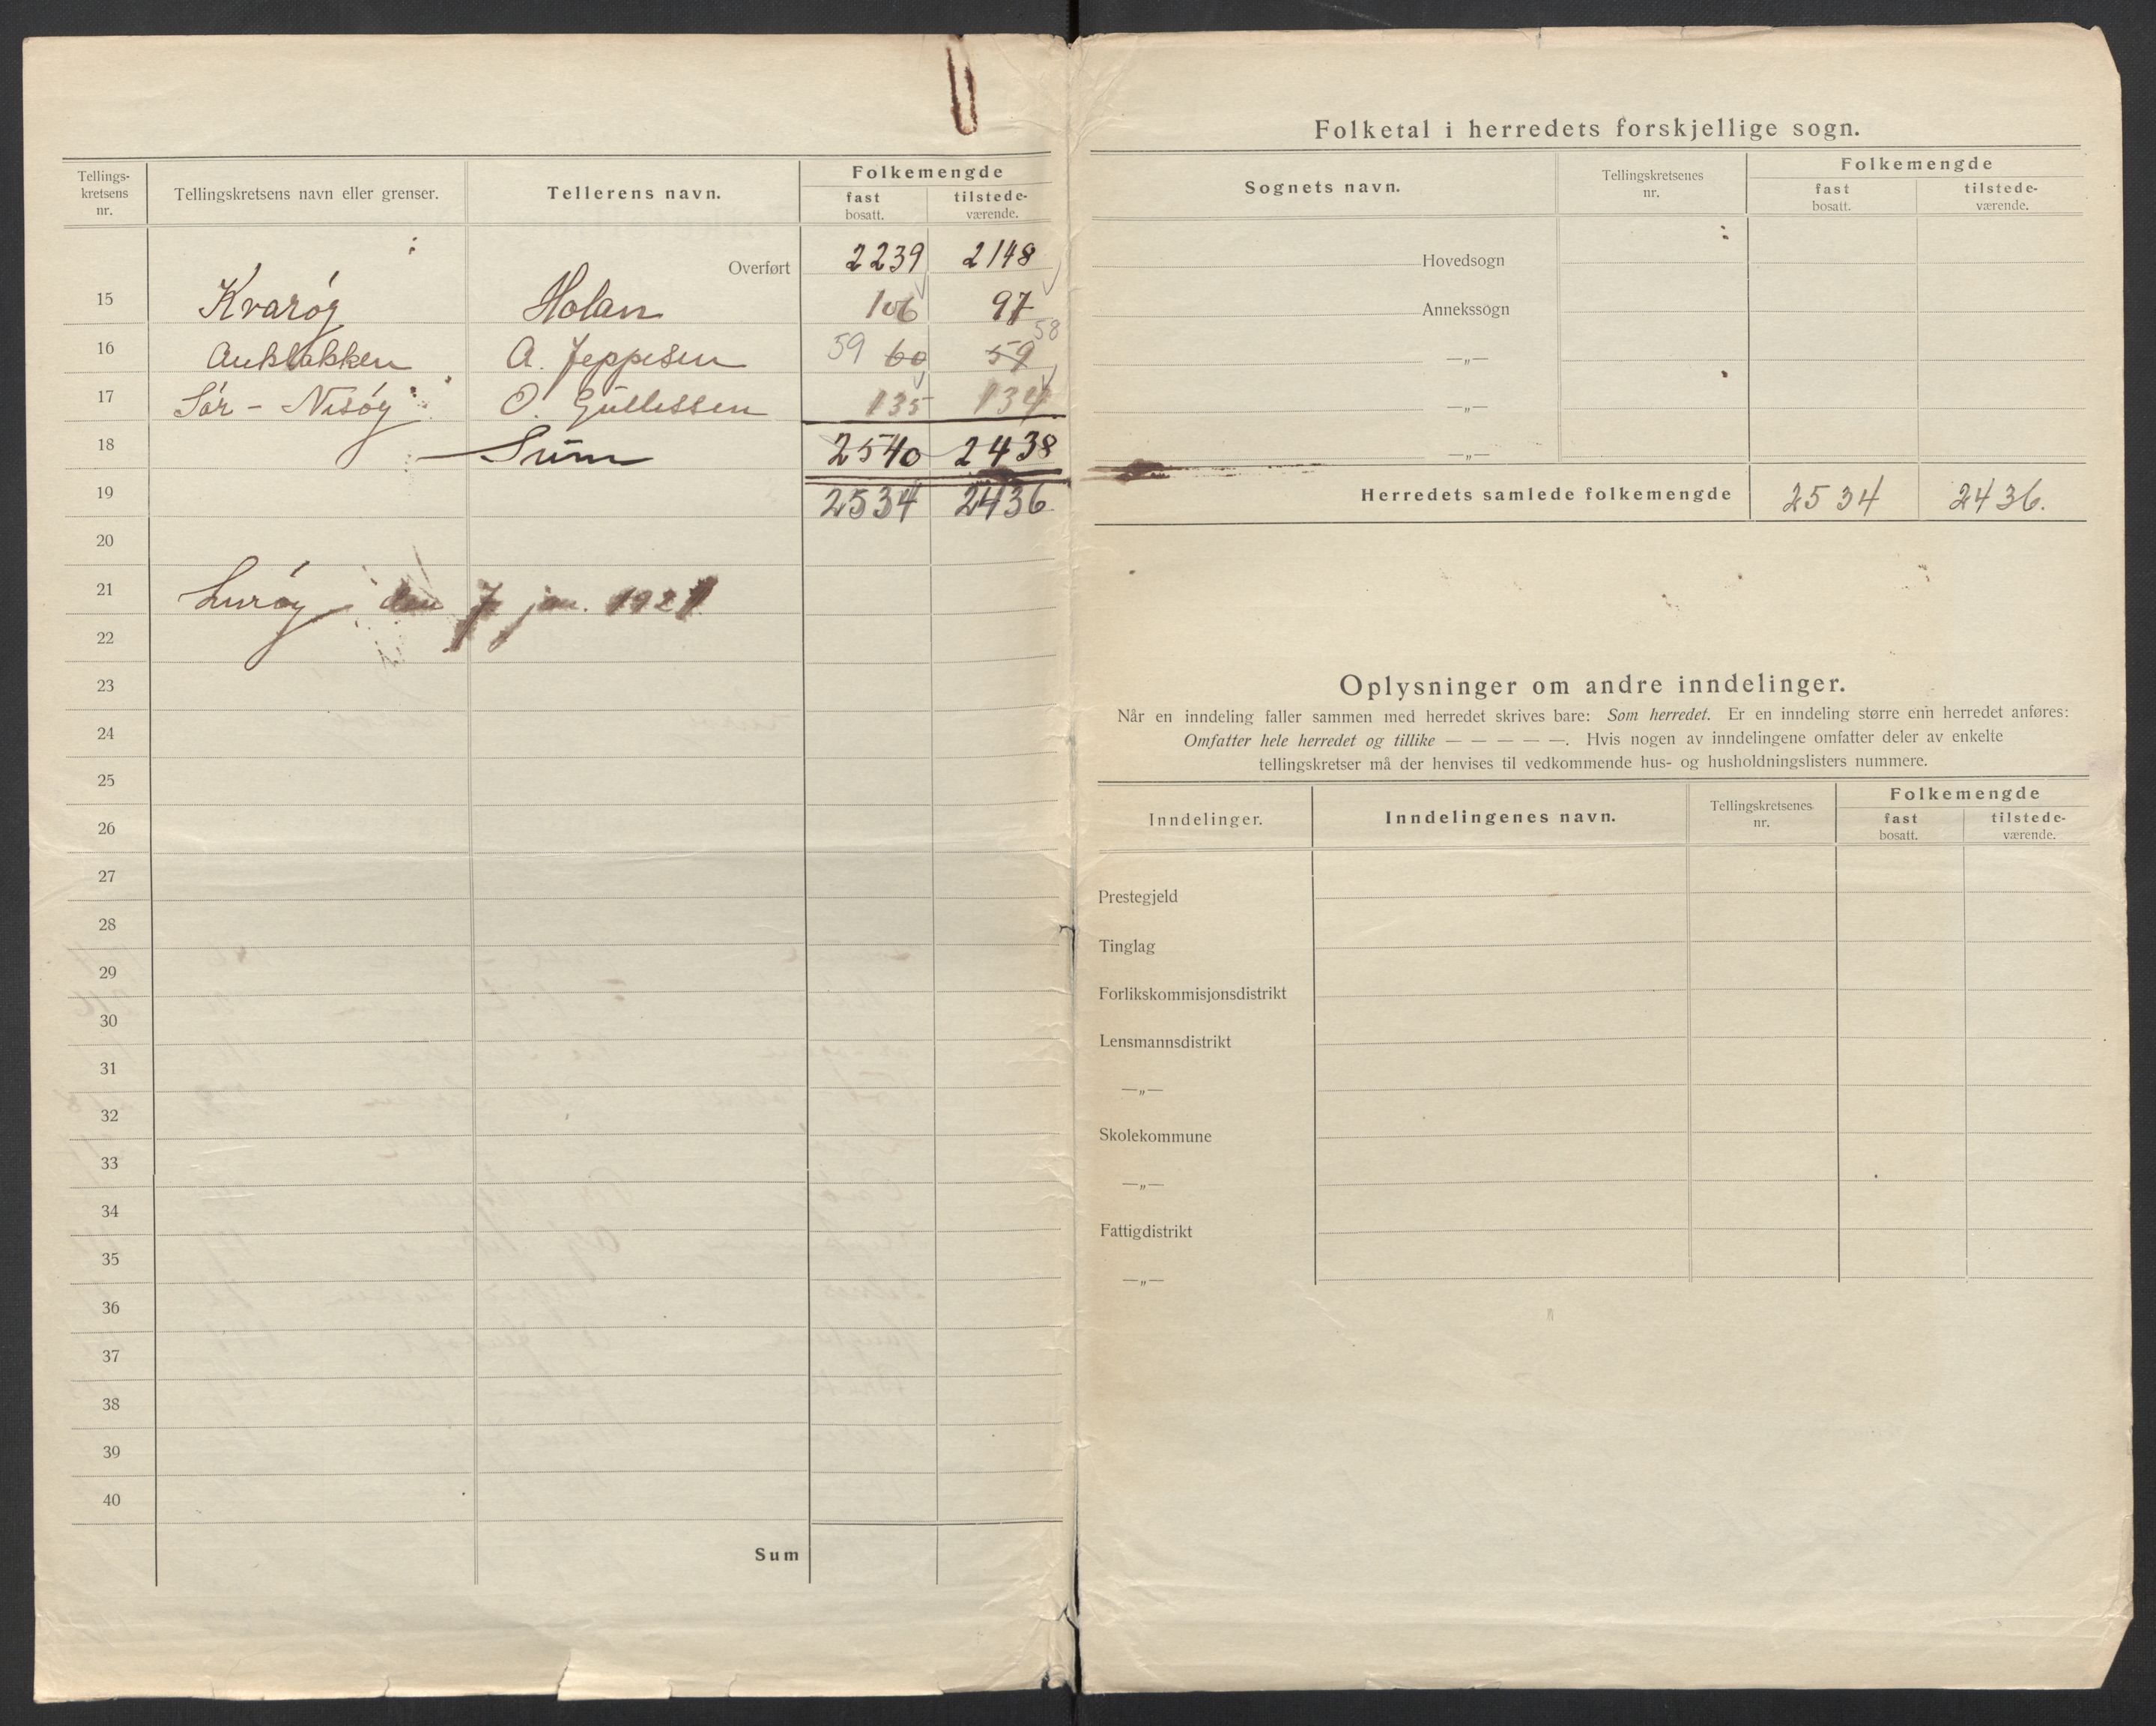 Tellings-kretsens nr. Tellingskretsens navn eller grenser. Tellerens navn. Folkemengde
fast bosatt. tilstede-værende.
Overført 2239 2148
15 Kvarøy Holan 106 97
16 A. Jeppesen 59 60 59 58
17 Sør - Nesøy O. Gullesen 135 134
18 Sum 2540 2438
19 2534 2436
20
21 Lurøy den 7 jan. 1921
22
23
24
25
26
27
28
29
30
31
32
33
34
35
36
37
38
39
40
Sum
Folketal i herredets forskjellige sogn.
Sognets navn. Tellingskretsenes nr. Folkemengde
fast bosatt. tilstede-værende.
Hovedsogn
Annekssogn
—„—
—„—
—„—
Herredets samlede folkemengde 2534 2436.
Oplysninger om andre inndelinger.
Når en inndeling faller sammen med herredet skrives bare: Som herredet. Er en inndeling større enn herredet anføres:
Omfatter hele herredet og tillike — — — — —. Hvis nogen av inndelingene omfatter deler av enkelte
tellingskretser må der henvises til vedkommende hus- og husholdningslisters nummere.
Inndelinger. Inndelingenes navn. Tellingskretsenes nr. Folkemengde
fast bosatt. tilstede-værende.
Prestegjeld
Tinglag
Forlikskommisjonsdistrikt
Lensmannsdistrikt
—„—
Skolekommune
—„—
Fattigdistrikt
—„—